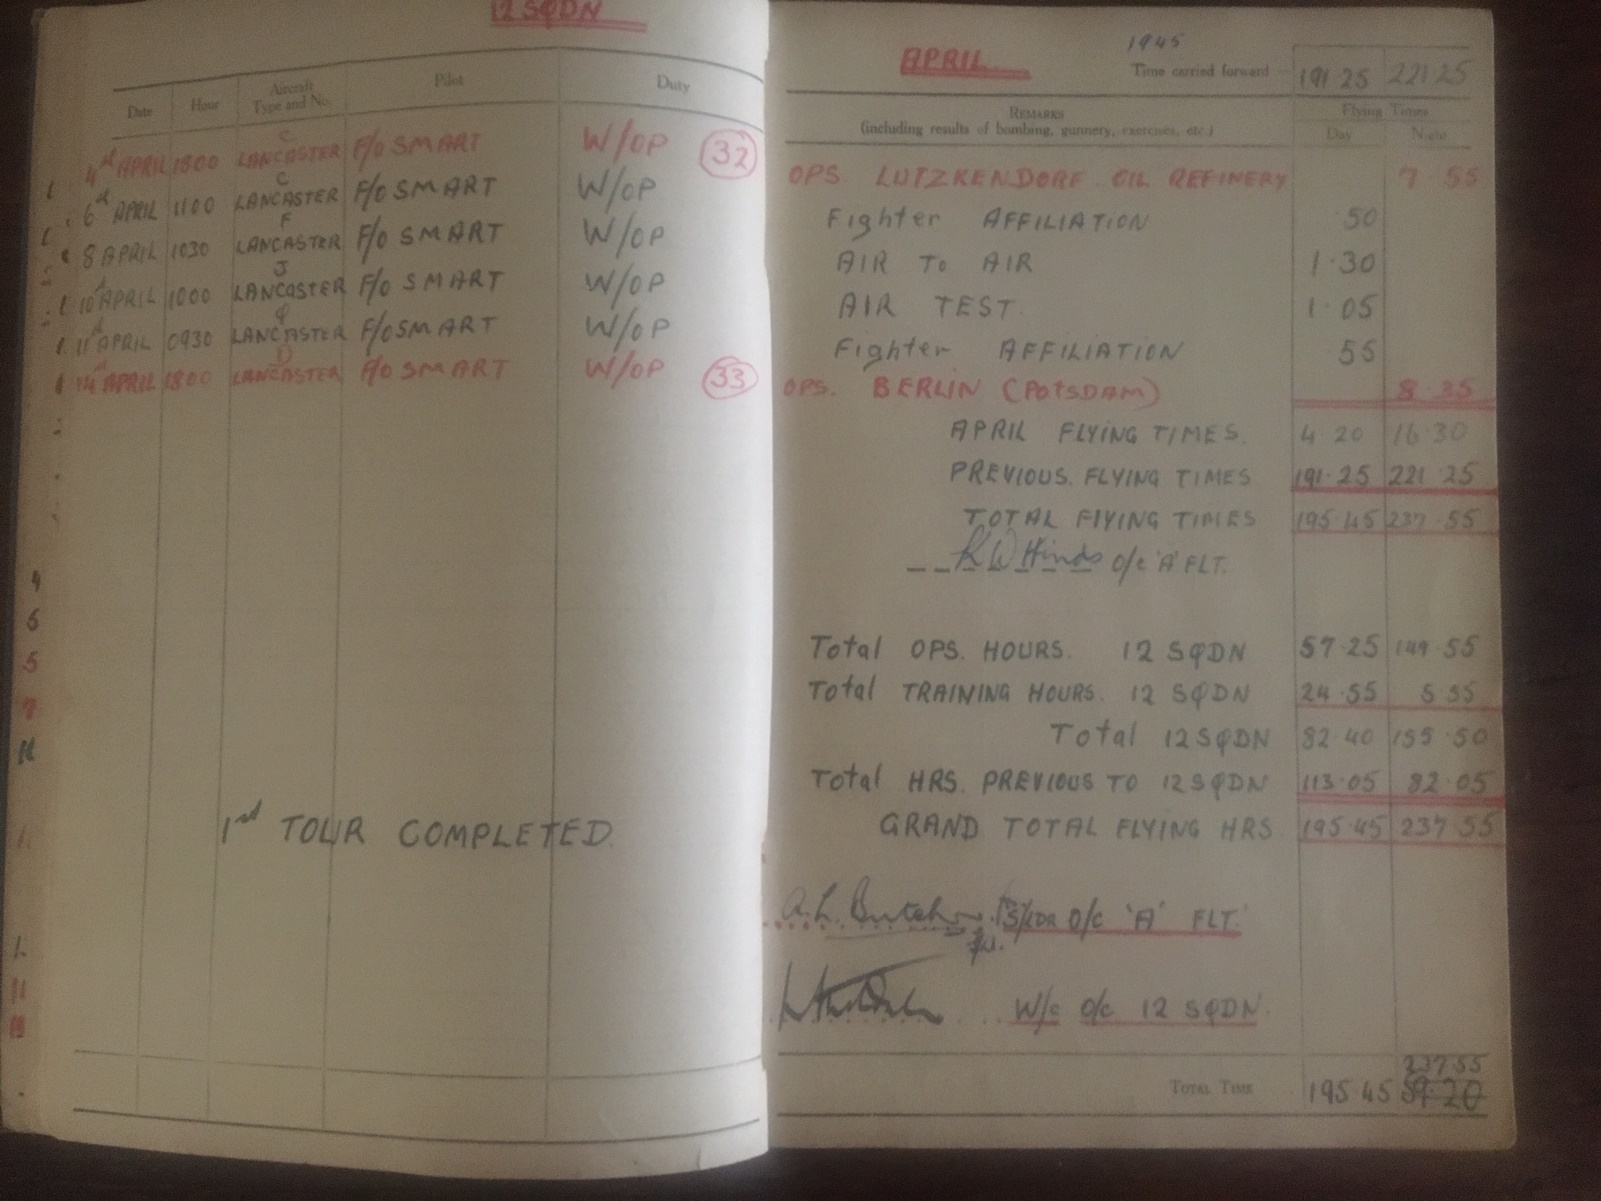 12 SQDN
Date Hour Aircraft Type and No. Pilot Duty
4th APRIL 1800 C LANCASTER F/O SMART W/OP 32
6th APRIL 1100 C LANCASTER F/O SMART W/OP
8 APRIL 1030 F LANCASTER F/O SMART W/OP
10th APRIL 1000 J LANCASTER F/O SMART W/OP
11th APRIL 0930 Q LANCASTER F/O SMART W/OP
14th APRIL 1800 D LANCASTER F/O SMART W/OP 33
1st TOUR COMPLETED.
APRIL 1945
Time carried forward 191.25 221.25
REMARKS
(including results of bombing, gunnery, exercises, etc.)
Flying Times
Day Night
OPS LUTZKENDORF OIL REFINERY 7.55
Fighter AFFILIATION 50
AIR TO AIR 1.30
AIR TEST. 1.05
Fighter AFFILIATION 55
OPS. BERLIN (POTSDAM) 8.35
APRIL FLYING TIMES. 4.20 16.30
PREVIOUS. FLYING TIMES 191.25 221.25
TOTAL FLYING TIMES 195.45 237.55
R W Hinds O/C 'A' FLT.
Total OPS. HOURS. 12 SQDN 57.25 149.55
Total TRAINING HOURS. 12 SQDN 24.55 5.55
Total 12 SQDN 82.40 155.50
Total HRS. PREVIOUS TO 12 SQDN 113.05 82.05
GRAND TOTAL FLYING HRS 195.45 237.55
A.L. S/LDR O/C 'A' FLT.
W/C O/C 12 SQDN.
237.55
TOTAL TIME 195.45 59.20
4
6
5
7
11